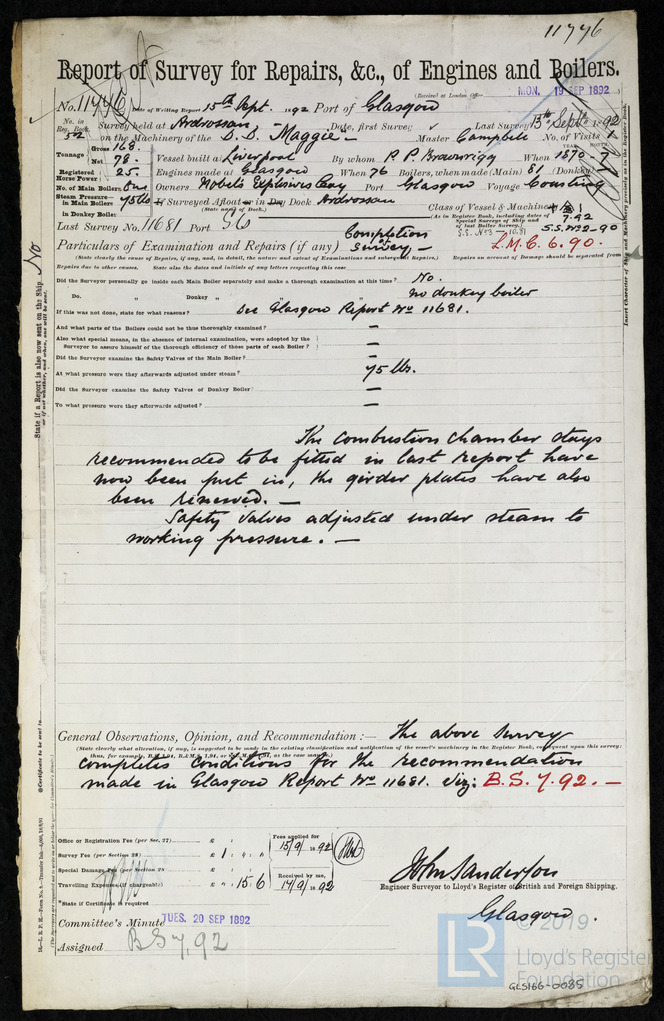 11446
Report of Survey for Repairs, &c., of Engines and Boilers.
(Received at London Office MON. 19 SEP 1892)
No. 11446 Date of Writing Report 15th Sept. 1892 Port of Glasgow
No. in Reg. Book. 52 Survey held at Ardrossan Date, first Survey Last Survey 13th Sept. 1892
on the Machinery of the S.S. Maggie Master Campbell No. of Visits 1
Tonnage Gross 168. Net 78. Vessel built at Liverpool By whom R P Brownrigg When 1870 - 7
Registered Horse Power 25. Engines made at Glasgow When 76 Boilers, when made (Main) 81 (Donkey)
No. of Main Boilers One Owners Nobels Explosives Coy Port Glasgow Voyage Coasting
Steam Pressure in Main Boilers 75 lbs If Surveyed Afloat or in Dry Dock Ardrossan
(State name of Dock.)
in Donkey Boiler
Class of Vessel & Machinery
(As in Register Book, including dates of Special Surveys of Ship and of last Boiler Survey.)
7.92
S.S. No 3 - 10.81
S.S. No 2 - 90
L.M.C. 6.90.
Last Survey No. 11681 Port Gls
Particulars of Examination and Repairs (if any) Completion survey —
(State clearly the cause of Repairs, if any, and, in detail, the nature and extent of Examinations and subsequent Repairs.) Repairs on account of Damage should be separated from
Repairs due to other causes. State also the dates and initials of any letters respecting this case
Did the Surveyor personally go inside each Main Boiler separately and make a thorough examination at this time? No.
Do. " Donkey " " " no donkey boiler
If this was not done, state for what reasons? See Glasgow Report No 11681.
And what parts of the Boilers could not be thus thoroughly examined? —
Also what special means, in the absence of internal examination, were adopted by the
Surveyor to assure himself of the thorough efficiency of those parts of each Boiler? —
Did the Surveyor examine the Safety Valves of the Main Boiler? —
At what pressure were they afterwards adjusted under steam? 75 lbs.
Did the Surveyor examine the Safety Valves of Donkey Boiler? —
To what pressure were they afterwards adjusted? —
The Combustion chamber stays
recommended to be fitted in last report have
now been put in, the girder plates have also
been renewed. —
Safety valves adjusted under steam to
working pressure. —
General Observations, Opinion, and Recommendation :— The above survey
(State clearly what alteration, if any, is suggested to be made in the existing classification and notification of the vessel's machinery in the Register Book, consequent upon this survey;
completes conditions for the recommendation
made in Glasgow Report No 11681. Viz: B.S. 7.92. —
Office or Registration Fee (per Sec. 27) £
Survey Fee (per Section 28) £ 1
Special Damage Fee (per Section 28 £
Travelling Expenses (if chargeable) £ 15.6
Fees applied for 15/9 1892
Received by me, 17/9 1892
*State if Certificate is required
John Sanderson
Engineer Surveyor to Lloyd's Register of British and Foreign Shipping.
Glasgow.
Committee's Minute TUES. 20 SEP 1892
Assigned B S 7, 92
State if a Report is also now sent on the Ship, No
or if not whether, and when, one will be sent.
Insert Character of Ship and Machinery precisely as in the Register Book.
© 2019
LR
Lloyd's Register
Foundation
GLS166-0085